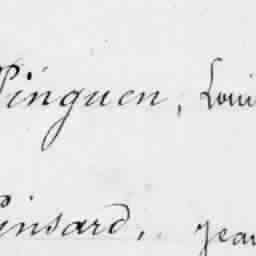 Pinguen, Loui
Pinsard, Jean